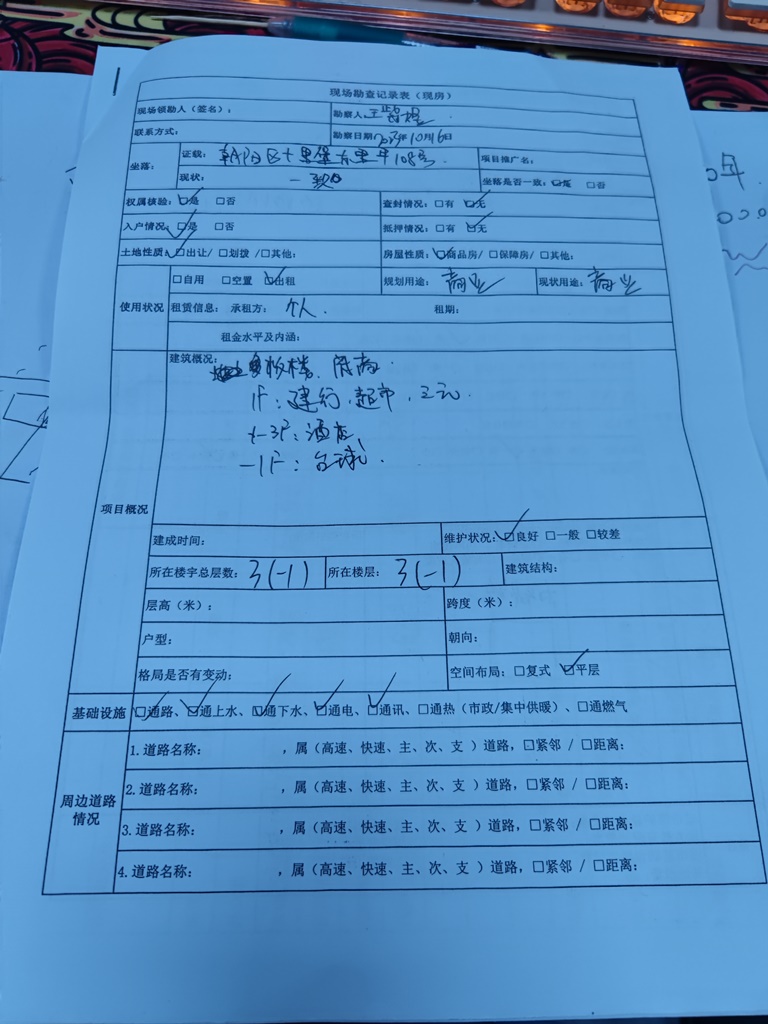 现场勘查记录表（现房）
现场领勘人（签名）： 勘察人：王
联系方式： 勘察日期：2023年10月16日
坐落： 证载：朝阳区十里堡 里 108号 项目推广名：
现状：一致 坐落是否一致：☑是 □否
权属核验：☑是 □否 查封情况：□有 ☑无
入户情况：☑是 □否 抵押情况：□有 ☑无
土地性质：☑出让/□划拨/□其他： 房屋性质：☑商品房/□保障房/□其他：
使用状况 □自用 □空置 ☑出租 规划用途：商业 现状用途：商业
租赁信息： 承租方：个人. 租期：
租金水平及内涵：
项目概况 建筑概况： 板楼、底商.
1F：建行，超市，
-3F：酒店
-1F：台球.
建成时间： 维护状况：☑良好 □一般 □较差
所在楼宇总层数：3(-1) 所在楼层：3(-1) 建筑结构：
层高（米）： 跨度（米）：
户型： 朝向：
格局是否有变动： 空间布局：□复式 ☑平层
基础设施 ☑通路、☑通上水、☑通下水、☑通电、☑通讯、□通热（市政/集中供暖）、□通燃气
周边道路情况 1.道路名称： ，属（高速、快速、主、次、支）道路，□紧邻 / □距离：
2.道路名称： ，属（高速、快速、主、次、支）道路，□紧邻 / □距离：
3.道路名称： ，属（高速、快速、主、次、支）道路，□紧邻 / □距离：
4.道路名称： ，属（高速、快速、主、次、支）道路，□紧邻 / □距离：